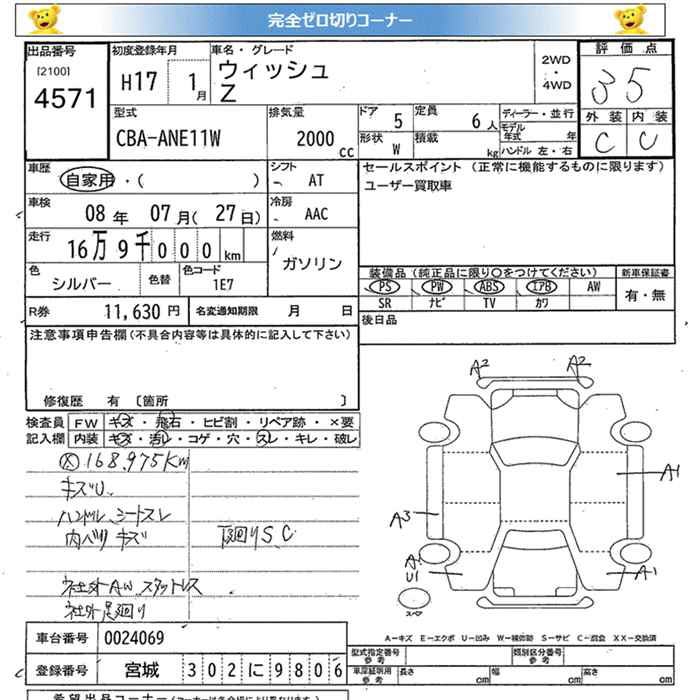 完全ゼロ切りコーナー
出品番号
[2100]
4571
初度登録年月
H17 1月
車名・グレード
ウィッシュ
Z
2WD
・
4WD
評価点
3 5
外装 内装
C C
型式
CBA-ANE11W
排気量
2000 cc
ドア 5
定員 6人
形状 W
積載 kg
ディーラー・並行
モデル年式 年
ハンドル 左・右
車歴
自家用・( )
シフト
AT
セールスポイント (正常に機能するものに限ります)
ユーザー買取車
車検
08年 07月(27日)
冷房
AAC
走行
16万9千000km
燃料
ガソリン
色
シルバー
色替
色コード
1E7
装備品(純正品に限り○をつけてください)
PS PW ABS エアB AW
SR ナビ TV カワ
新車保証書
有・無
R券 11,630円
名変通知期限 月 日
後日品
注意事項申告欄(不具合内容等は具体的に記入して下さい)
修復歴 有 〔箇所 〕
検査員記入欄
FW キズ・飛石・ヒビ割・リペア跡・×要
内装 キズ・汚レ・コゲ・穴・スレ・キレ・破レ
168.975Km
キズU
ハンドル シートスレ
内ベリ キズ
下廻りS.C
社外AW スタットレス
社外足廻り
A2 A2
A1
A3
A1
U1
A1
スペア
A−キズ E−エクボ U−凹み W−補修跡 S−サビ C−腐食 XX−交換済
車台番号 0024069
登録番号 宮城 302に9806
型式指定番号 参考
類別区分番号 参考
車庫証明用 参考
長さ cm 幅 cm 高さ cm
希望出品コーナー